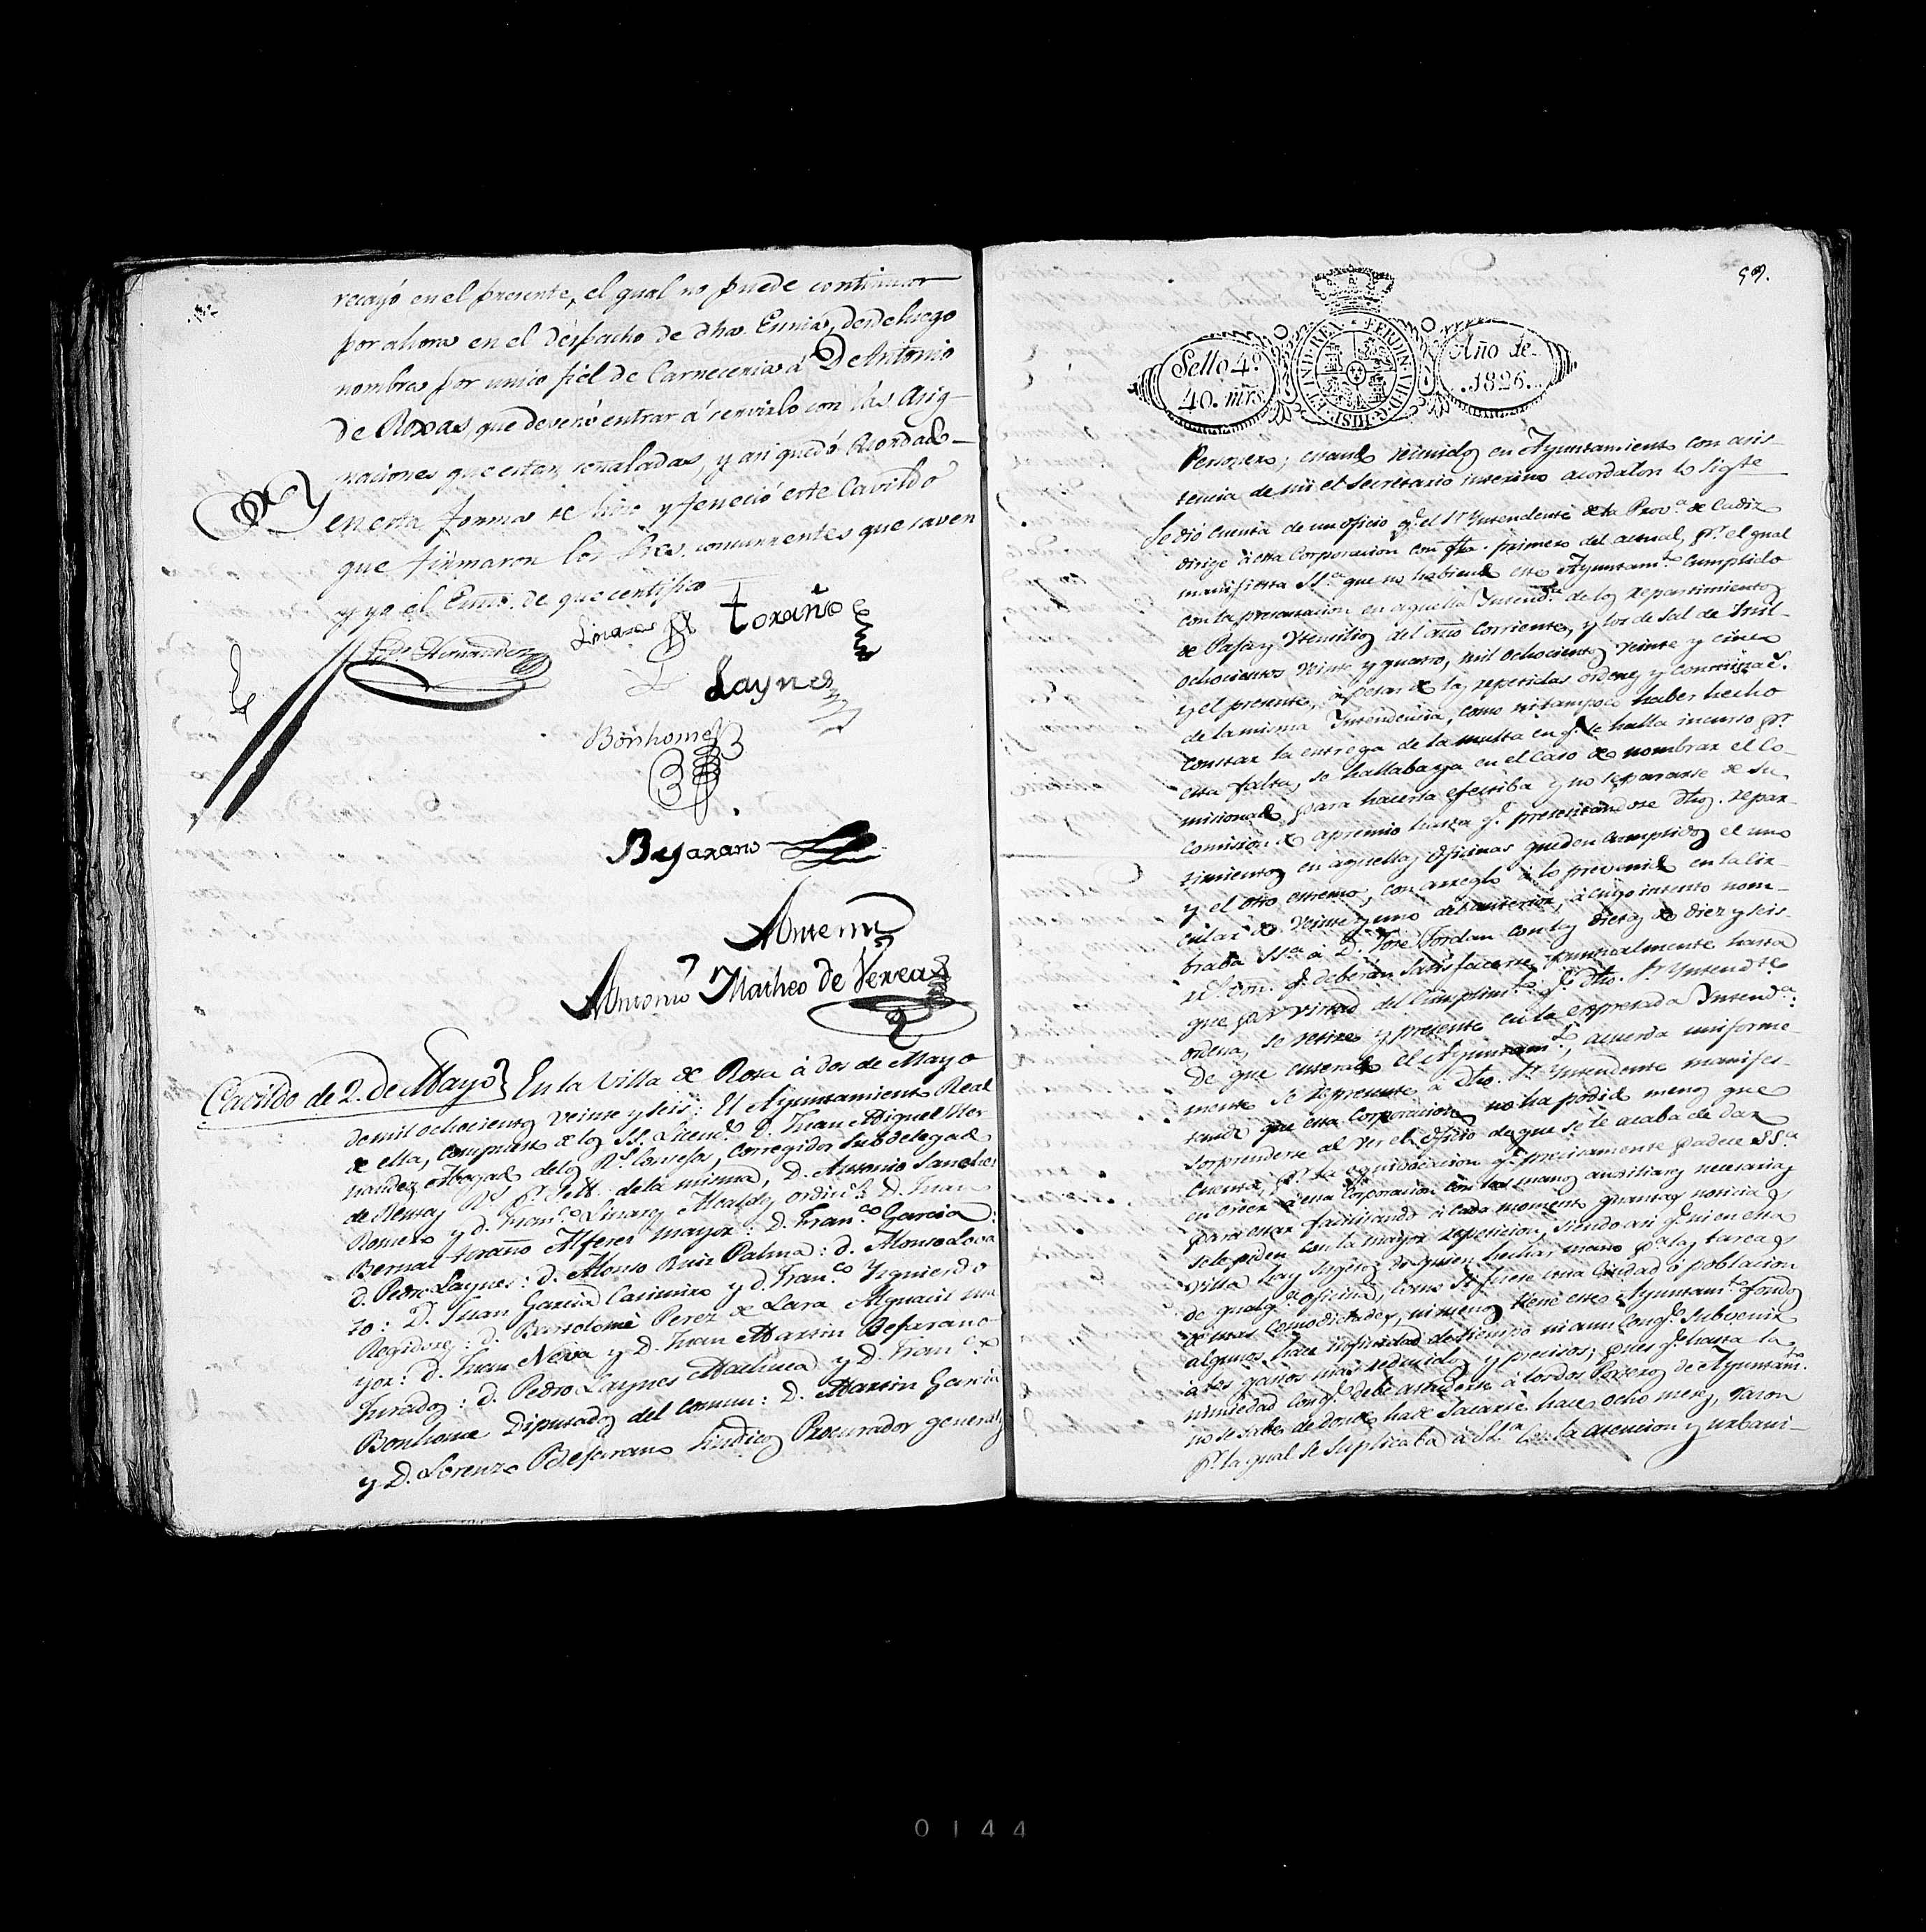 recayó en el presente, el qual no puede continuar
por ahora en el despacho de dhas. Ennias, desde luego
nombras por unico fiel de Carnecerias á Dn Antonio
de Roxas, que deverá entrar á servirlo con las Asig-
naciones que estan señaladas, y asi quedó acordado
Y en esta forma se hizo y feneció este Cavildo
que firmaron los Sres. concurrentes que saven
y yo el Essno. de que certifico
Ldo. Hernandez
Linares
toraño
Laynes
Bonhome
Bejarano
Ante mi
Antonio Matheo de Verea
Cavildo de 2. de Mayo} En la Villa de Rota á dos de Mayo
de mil ochocientos veinte y seis: El Ayuntamiento Real
de ella, compuesto de los SS. Licendo. D. Juan Miguel Her
nandez Abogado de los Rs. Consejos, Corregidor Subdelegado
de Rentas Rs. pr. S.M. de la misma, D. Antonio Sanchez
Romero y d. Franco. Linares Alcaldes ordins.: D. Juan
Bernal toraño Alferes mayor: D. Franco. Garcia:
d. Pedro Laynes: d. Alonso Ruiz Palma: d. Alonso Lova
to: D. Juan Garcia Casimiro y d. Franco. Yzquierdo
Regidores: d. Bartolomé Perez de Lara Alguacil ma
yor: d. Juan Neva y D. Juan Martin Bejarano
Jurados: d. Pedro Laynes Machuca y D. Franco.
Bonhome Diputados del Comun: D. Martin Garcia
y D. Lorenzo Bejarano Sindicos Procurador general y
59.
Sello 4º.
40. mrs.
HISP. ET IND. REX FERDIN. VII. D. G.
Año de
1826.
Personero; estando reunidos en Ayuntamiento con asis-
tencia de mi el Secretario interino acordaron lo sigte
Se dió cuenta de un oficio qe. el Sr. Yntendente de la Prova. de Cadiz
dirige á esta Corporacion con fha. primero del actual, pr. el qual
manifiesta SSa. que no habiendo este Ayuntamto. cumplido
con la presentacion en aquella Yntendcia. de los repartimientos
de Paja y Utensilios del año corriente, y los de sal de mil
ochocientos veinte y quatro, mil ochocientos veinte y cinco
y el presente, á pesar de las repetidas ordenes y conminacs.
de la misma Yntendencia, como ni tampoco haber hecho
constar la entrega de la multa en qe. se halla incurso pr.
esta falta, se hallaba ya en el caso de nombrar el Co-
misionado para hacerla efectiba y no separarse de su
comision de apremio hasta qe. presentandose dhos. repar-
timientos en aquellas oficinas queden cumplidos el uno
y el otro estremo, con arreglo á lo prevenido en la cir-
cular de veinte y uno del anterior, á cuyo intento nom-
braba SSa. á D. José Jordan con las dietas de diez y seis
rs. von. qe. deberán satisfacerse puntualmente hasta
que por virtud del cumplimto. qe. dho. Sr. Yntendte.
ordena, se retire y presente en la expresada Yntenda.:
De que enterado el Ayuntamto., acuerda uniforme-
mente se represente á dho. Sr. Yntendente manifes-
tando que esta Corporacion no ha podido menos que
sorprenderse al ver el oficio de que se le acaba de dar
cuenta, pr. la equivocacion qe. precisamente padece SSa.
en creer á esta Corporacion con las manos auxiliares necesarias
para estar facilitando á cada momento quantas noticias
se le piden con la mayor repeticion, siendo asi qe. ni en esta
villa hay sugetos de quien hechar mano pa. las tareas
de qualqa. oficina, como si fuese una Ciudad ó poblacion
de mas comodidades, ni menos tiene este Ayuntamto. fondos
algunos hace infinidad de tiempo ni aun con qe. subvenir
á los gastos mas reducidos y precisos; pues qe. hasta la
nimiedad con qe. debe atenderse á los dos Porteros de Ayuntamto.
no se sabe de donde ha de sacarse hace ocho meses, razon
pr. la qual se suplicaba á SSa. con la atencion y urbani-
0144